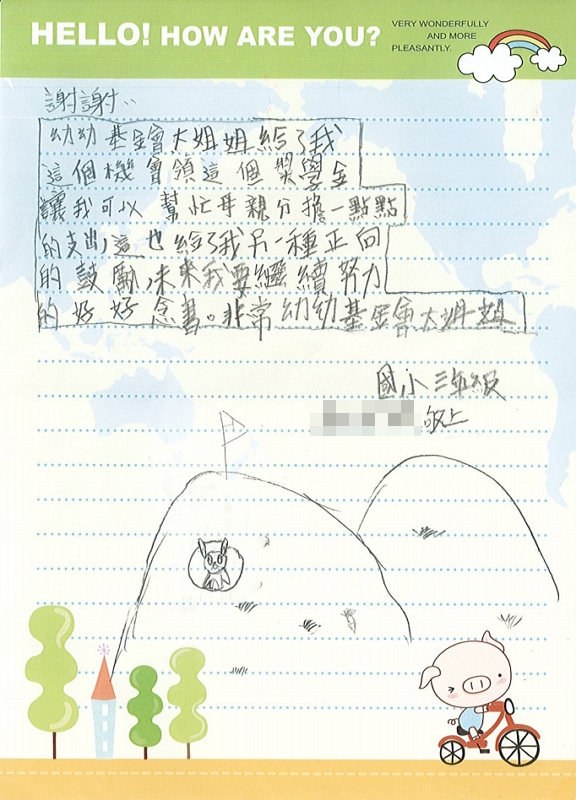 HELLO! HOW ARE YOU?
VERY WONDERFULLY
AND MORE
PLEASANTLY.
謝謝..
幼幼基金會大姐姐給了我
這個機會領這個獎學金
讓我可以幫忙母親分擔一點點
的支出,這也給了我另一種正向
的鼓勵,未來我要繼續努力
的好好念書。非常幼幼基金會大姐姐
國小三年級
敬上